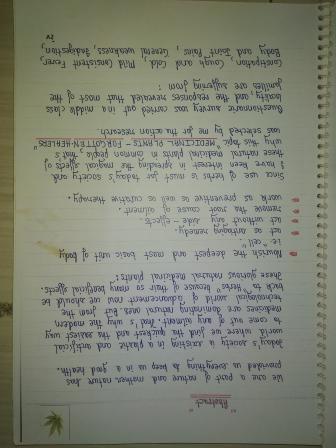 "Abstract"
We are a part of nature and mother nature has
provided us everything to keep us in a good health.
Today's society is existing in a plastic and artificial
world where we find the quickest and the easiest way
to come out of any ailment. And that's why the modern
medicines are dominating natural ones. But from the
technological world of advancement now we should be
back to "herbs" because of their so many beneficial effects.
These glorious natural medicinal plants:
Nourish the deepest and most basic unit of the body
i.e. "cell"
act as antiaging remedy.
act without any side-effects.
remove the root cause of ailment.
work as preventive as well as curative therapy.
Since use of herbs is must for today's society and
I have keen interest in spreading the magical effects of
these natural medicinal plants in common people, that's
why this topic "MEDICINAL PLANTS - FORGOTTEN HEALERS"
was selected by me for the action research.
Questionnaire survey was carried out in a middle class
locality and the responses revealed that most of the
families are suffering from :
Constipation, Cough and Cold, Mild Consistent Fever,
Body and Joint Pains, General weakness, Indigestion,
iv